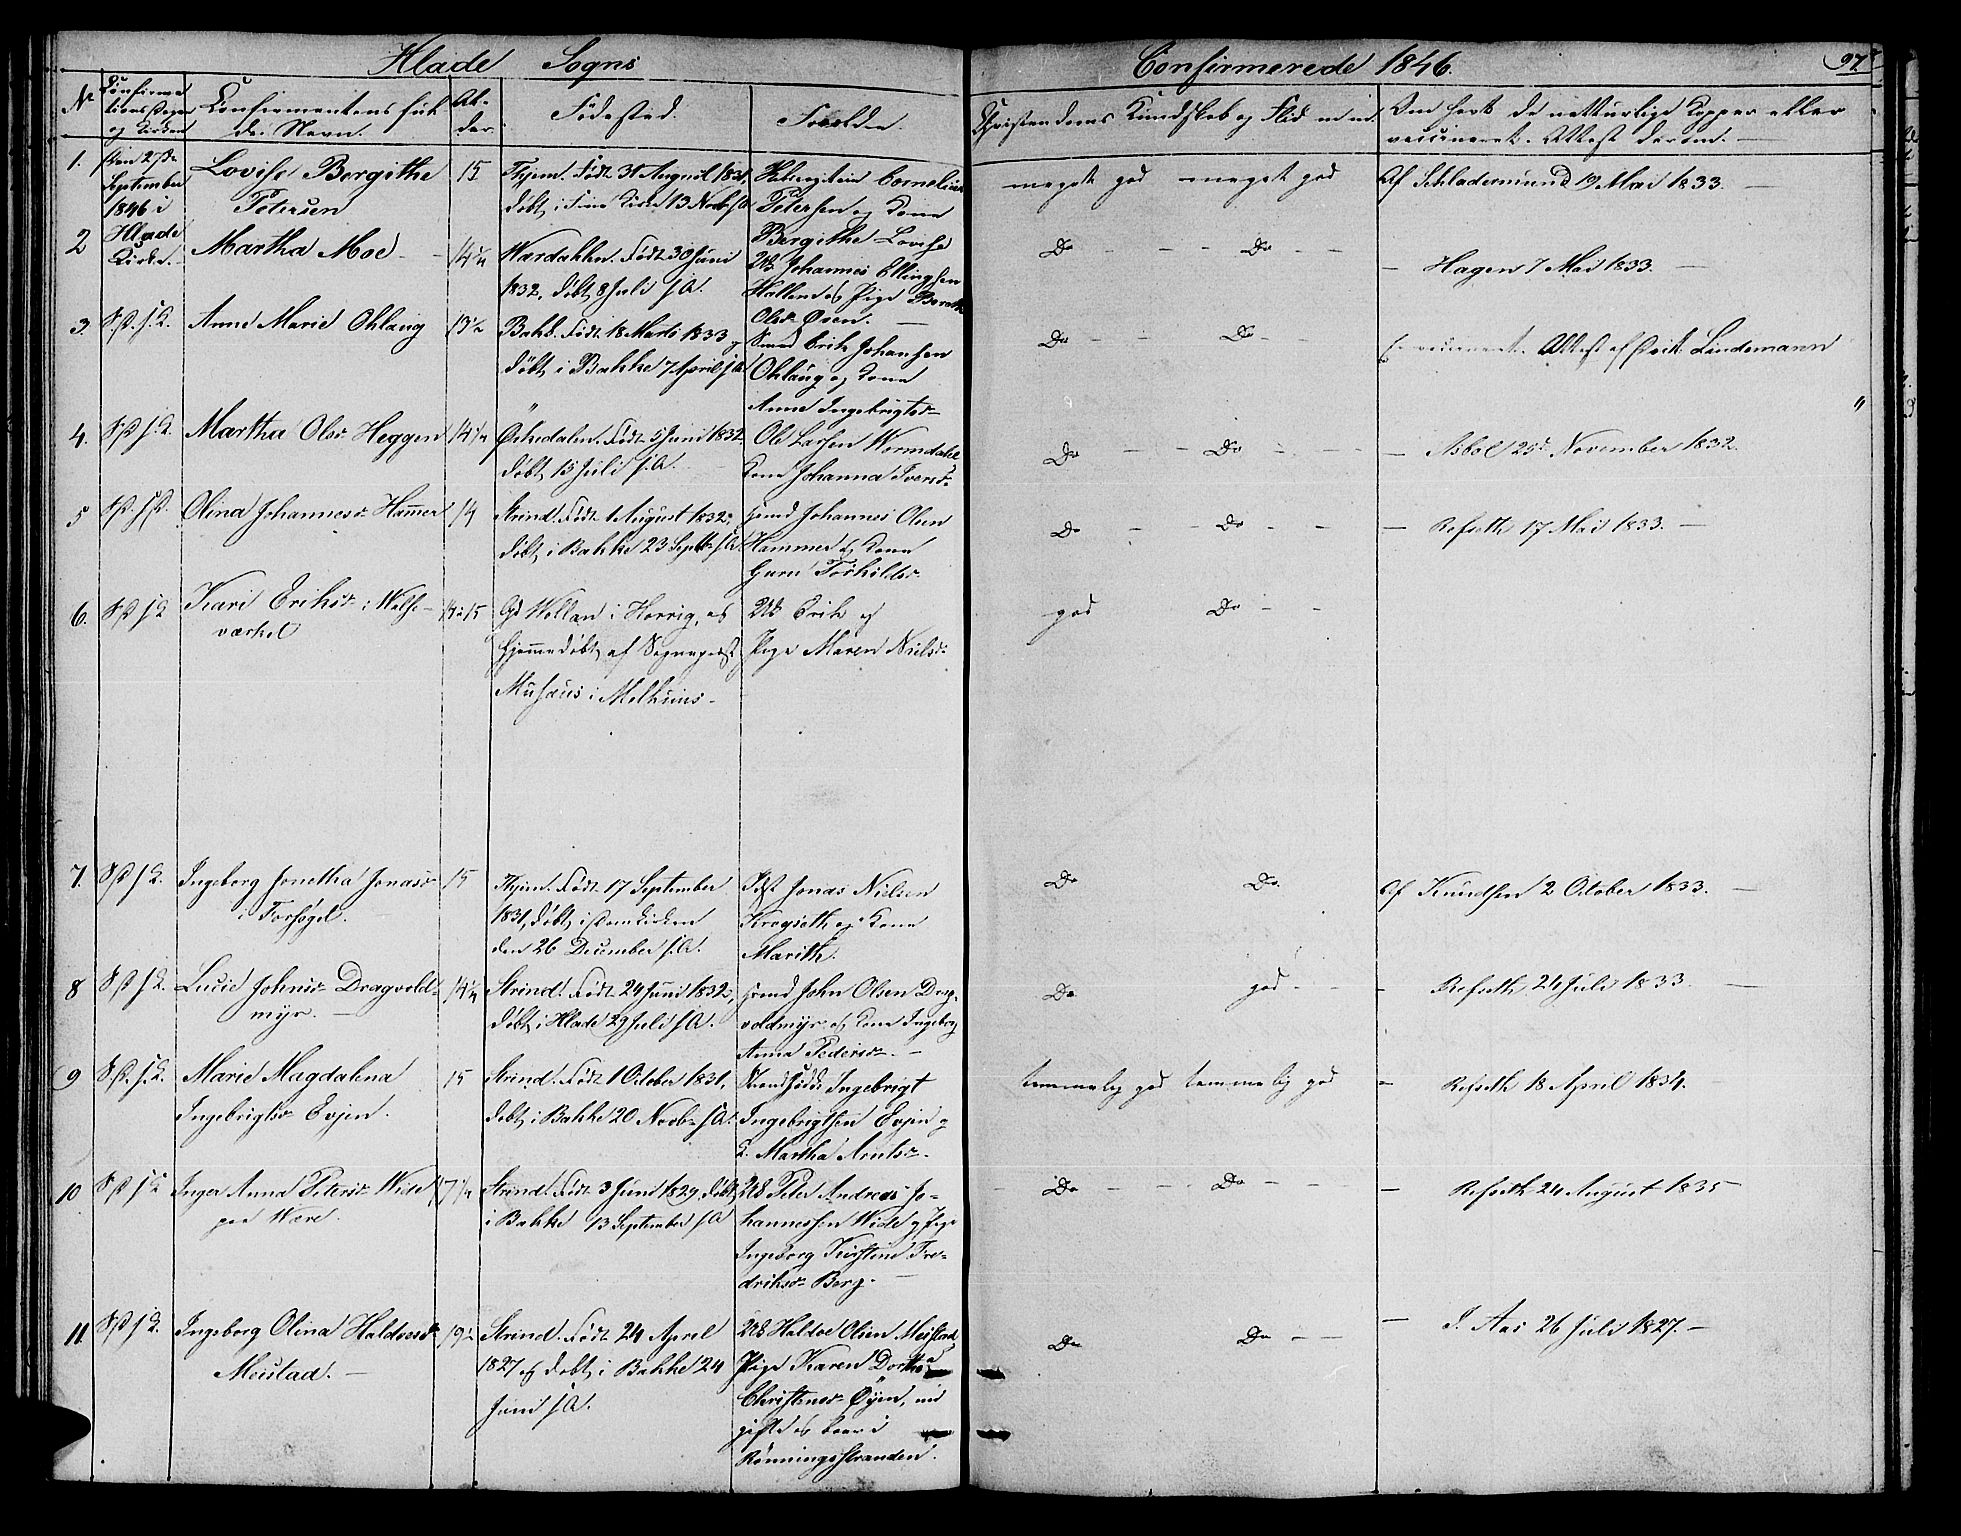 Hlade Sogns
Confirmerede 1846.
97
No
Confirma
tions Dagen
og Kirken
Confirmandens fulde
Navn.
Al-
der
Födested.
Forældre.
Christendoms Kundskab og Flid
Om havt de naturlige Kopper eller
vaccineret. Attest derom.
1.
Den 27de
September
1846 i
Hlade
Kirke.
Lovise Bergithe
Petersen
15
Thjem. Födt 31 August 1831,
döbt i Frue Kirke 13 Novbr s. A.
Cornelius
Petersen og Kone
Bergithe Lovise
meget god meget god
Af Schladermund 19 Mai 1833.
2
Martha Moe
14 1/4
Wærdahlen. Födt 30 Juni
1832, döbt 8 Juli s. A.
Uæ Johannes Ellingsen
Hallem og Pige Bereth
Olsdr Øren.
Do - - - Do - -
- Hagen 7 Mai 1833. -
3.
S. D. s. K.
Anne Marie Ohlaug
13 1/2
Bakke. Födt 18 Marts 1833
döbt i Bakke 7 April s. A.
Smed Erik Johansen
Ohlaug og Kone
Anne Ingebrigtsdr
Do - - Do - -
Er vaccineret. Attest af Prost Lindemann
4.
S. D. s. K.
Martha Olsdr Heggen
14 1/4
Ørkedalen. Födt 5 Juni 1832.
döbt 15 Juli s. A.
Ole Larsen Wormdahl
Kone Johanna Iversdr
Do - - Do - -
25de November 1832.
5
S. D. s. K.
Olina Johannesdr Hammer
14
Strind. Födt 1 August 1832,
döbt i Bakke 23 Septbr s. A.
Hmd Johannes Olsen
Hammer og Kone
Guru Torkildsdr
Do - - Do - -
- Refseth 17 Mai 1833. -
6.
S. D. s. K.
Kari Eriksdr i
værket
14 à 15
Gd Wollan i Horrig, og
hjemmedöbt af Sognepræst
Musæus i Melhuus -
Uæ Erik og
Pige Maren Nielsdr
god Do - -
7.
S. D. s. K.
Ingeborg Jonetha Jonasdr
i Forsöget.
15
Thjem. Födt 17 September
1831, döbt i Domkirken
den 26 December s. A.
Jonas Nielsen
Krogseth og Kone
Marith.
Do Do
Af Knudtsen 2 October 1833. -
8
S. D. s. K.
Lucie Johnsdr Dragvold-
myr. -
14 1/4
Strind. Födt 24 Juni 1832,
döbt i Hlade 29 Juli s. A.
Hmd John Olsen Drag-
voldmyr og Kone Ingeborg
Anna Pedersdr -
Do god - -
- Refseth 24 Juli 1833. -
9
S. D. s. K.
Marie Magdalena
Ingebrigtsdr Evjen.
15
Strind. Födt 1 October 1831,
döbt i Bakke 20 Novbr s. A.
Strandsidder Ingebrigt
Ingebrigtsen Evjen og
K. Martha Arntsdr
temmelig god temmelig god
- Refseth 18 April 1834.
10
S. D. s. K.
Inger Anna Petersdr Wide
paa Være.
17 1/4
Strind. Födt 3 Juni 1829, döbt
i Bakke 13 September s. A.
Uæ Peter Andreas Jo-
hannessen Wide og Pige
Ingeborg Kirstine Fre-
driksdr Berg. -
- Do - - - Do - - -
- Refseth 24 August 1835
11
S. D. s. K.
Ingeborg Olina Haldosdr
Meistad. -
19
Strind. Födt 24 April
1827 og döbt i Bakke 24
Juni s. A.
Uæ Haldo Olsen Meistad
Pige Karen Dorthea
Christensdr Øyen, nu
gift og boer i
Rönningsstranden.
Do Do - -
- I. Aas 26 Juli 1827. -